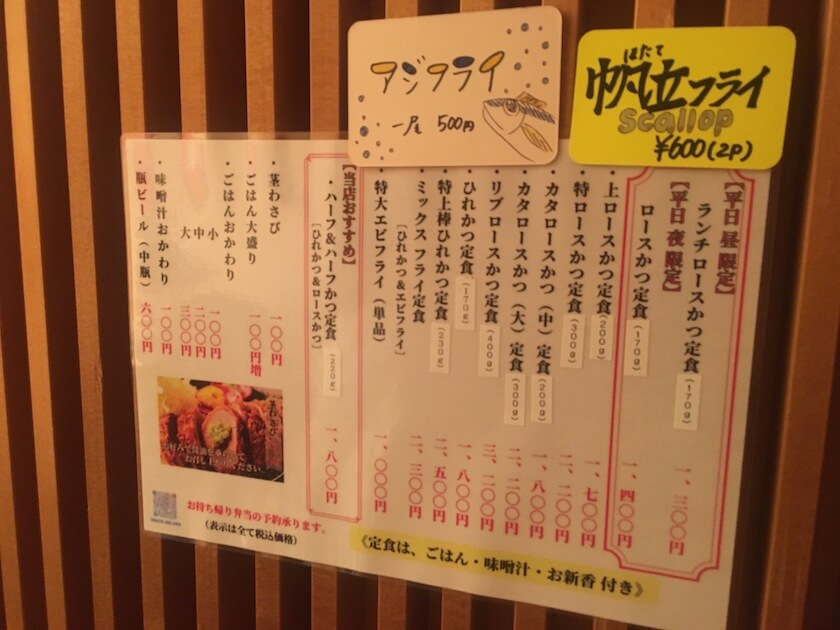 アジフライ
一尾 500円
ほたて
帆立フライ
scallop
¥600(2P)
【平日 昼 限定】
ランチロースかつ定食(170g) 一、三〇〇円
【平日 夜 限定】
ロースかつ定食(170g) 一、四〇〇円
・上ロースかつ定食(200g) 一、七〇〇円
・特ロースかつ定食(300g) 二、二〇〇円
・カタロースかつ(中)定食(200g) 一、八〇〇円
・カタロースかつ(大)定食(300g) 二、二〇〇円
・リブロースかつ定食(400g) 三、二〇〇円
・ひれかつ定食(170g) 一、八〇〇円
・特上棒ひれかつ定食(230g) 二、五〇〇円
・ミックスフライ定食 二、三〇〇円
[ひれかつ&エビフライ]
・特大エビフライ(単品) 一、〇〇〇円
【当店おすすめ】
・ハーフ&ハーフかつ定食(220g) 一、八〇〇円
[ひれかつ&ロースかつ]
・茎わさび 一〇〇円
・ごはん大盛り 一〇〇円増
・ごはんおかわり
小 一〇〇円
中 二〇〇円
大 三〇〇円
・味噌汁おかわり 一〇〇円
・瓶ビール(中瓶) 六〇〇円
茎わさび
お召し上がりください
お持ち帰り弁当の予約承ります。
(表示は全て税込価格)
《定食は、ごはん・味噌汁・お新香 付き》